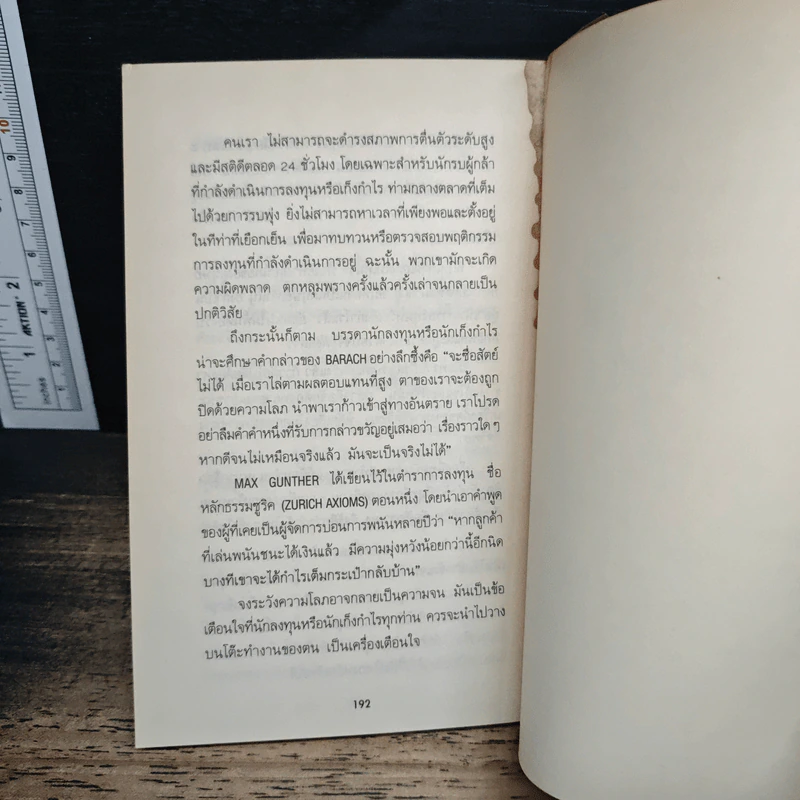 คนเรา ไม่สามารถจะดำรงสภาพการตื่นตัวระดับสูง
และมีสติดีตลอด 24 ชั่วโมง โดยเฉพาะสำหรับนักรบผู้กล้า
ที่กำลังดำเนินการลงทุนหรือเก็งกำไร ท่ามกลางตลาดที่เต็ม
ไปด้วยการรบพุ่ง ยิ่งไม่สามารถหาเวลาที่เพียงพอและตั้งอยู่
ในทีท่าที่เยือกเย็น เพื่อมาทบทวนหรือตรวจสอบพฤติกรรม
การลงทุนที่กำลังดำเนินการอยู่ ฉะนั้น พวกเขามักจะเกิด
ความผิดพลาด ตกหลุมพรางครั้งแล้วครั้งเล่าจนกลายเป็น
ปกติวิสัย
ถึงกระนั้นก็ตาม บรรดานักลงทุนหรือนักเก็งกำไร
น่าจะศึกษาคำกล่าวของ BARACH อย่างลึกซึ้งคือ “จะซื่อสัตย์
ไม่ได้ เมื่อเราไล่ตามผลตอบแทนที่สูง ตาของเราจะต้องถูก
ปิดด้วยความโลภ นำพาเราก้าวเข้าสู่ทางอันตราย เราโปรด
อย่าลืมคำคำหนึ่งที่รับการกล่าวขวัญอยู่เสมอว่า เรื่องราวใด ๆ
หากดีจนไม่เหมือนจริงแล้ว มันจะเป็นจริงไม่ได้”
MAX GUNTHER ได้เขียนไว้ในตำราการลงทุน ชื่อ
หลักธรรมซูริค (ZURICH AXIOMS) ตอนหนึ่ง โดยนำเอาคำพูด
ของผู้ที่เคยเป็นผู้จัดการบ่อนการพนันหลายปีว่า “หากลูกค้า
ที่เล่นพนันชนะได้เงินแล้ว มีความมุ่งหวังน้อยกว่านี้อีกนิด
บางทีเขาจะได้กำไรเต็มกระเป๋ากลับบ้าน”
จงระวังความโลภอาจกลายเป็นความจน มันเป็นข้อ
เตือนใจที่นักลงทุนหรือนักเก็งกำไรทุกท่าน ควรจะนำไปวาง
บนโต๊ะทำงานของตน เป็นเครื่องเตือนใจ
192